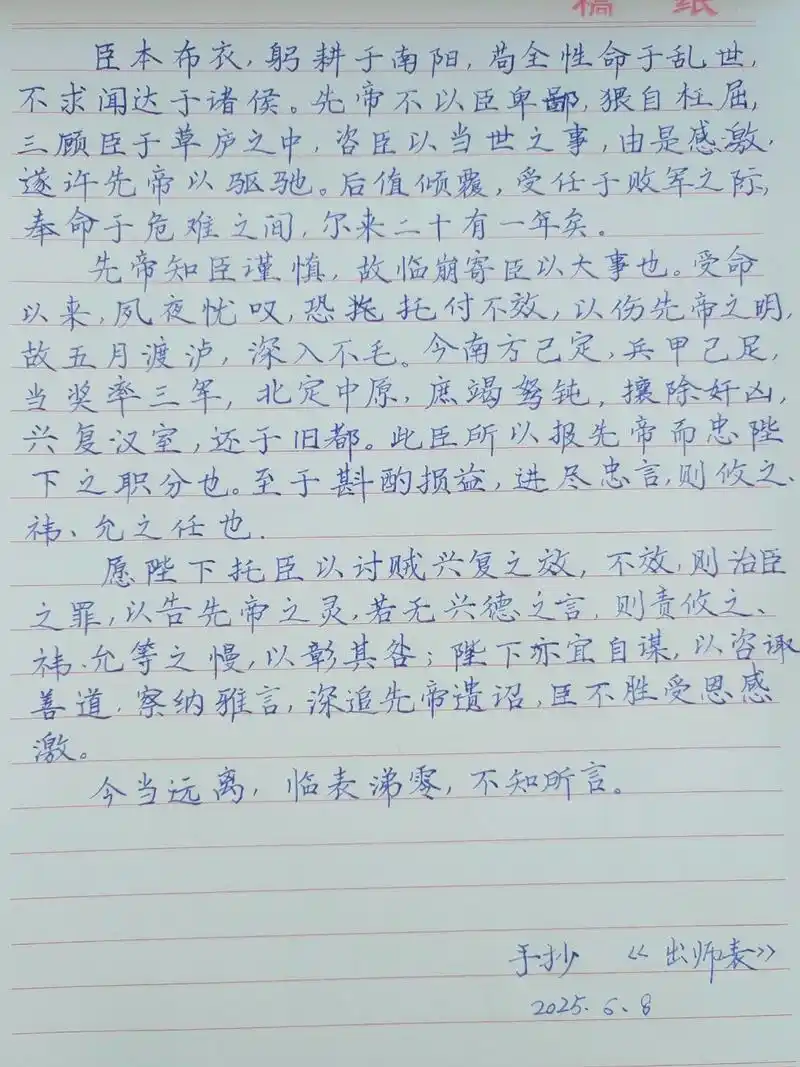 稿 纸
臣本布衣，躬耕于南阳，苟全性命于乱世，
不求闻达于诸侯。先帝不以臣卑鄙，猥自枉屈，
三顾臣于草庐之中，咨臣以当世之事，由是感激，
遂许先帝以驱驰。后值倾覆，受任于败军之际，
奉命于危难之间，尔来二十有一年矣。
先帝知臣谨慎，故临崩寄臣以大事也。受命
以来，夙夜忧叹，恐托付不效，以伤先帝之明，
故五月渡泸，深入不毛。今南方已定，兵甲已足，
当奖率三军，北定中原，庶竭驽钝，攘除奸凶，
兴复汉室，还于旧都。此臣所以报先帝而忠陛
下之职分也。至于斟酌损益，进尽忠言，则攸之、
祎、允之任也.
愿陛下托臣以讨贼兴复之效，不效，则治臣
之罪，以告先帝之灵，若无兴德之言，则责攸之、
祎、允等之慢，以彰其咎；陛下亦宜自谋，以咨诹
善道，察纳雅言，深追先帝遗诏，臣不胜受恩感
激。
今当远离，临表涕零，不知所言。
手抄 《出师表》
2025.6.8